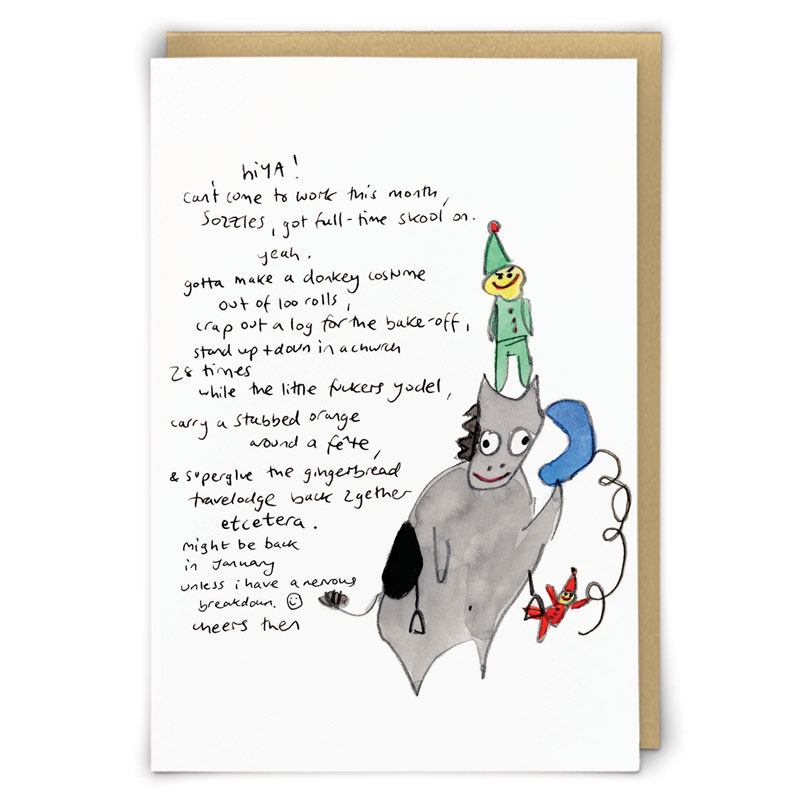 hiYA!
can't come to work this month,
Sozzles, got full-time skool on.
yeah.
gotta make a donkey costume
out of 100 rolls,
crap out a log for the bake-off,
stand up + down in a church
28 times
while the little fuckers yodel,
carry a stabbed orange
around a fête,
& superglue the gingerbread
travelodge back 2gether
etcetera.
might be back
in January
unless i have a nervous
breakdown. ☺
cheers then